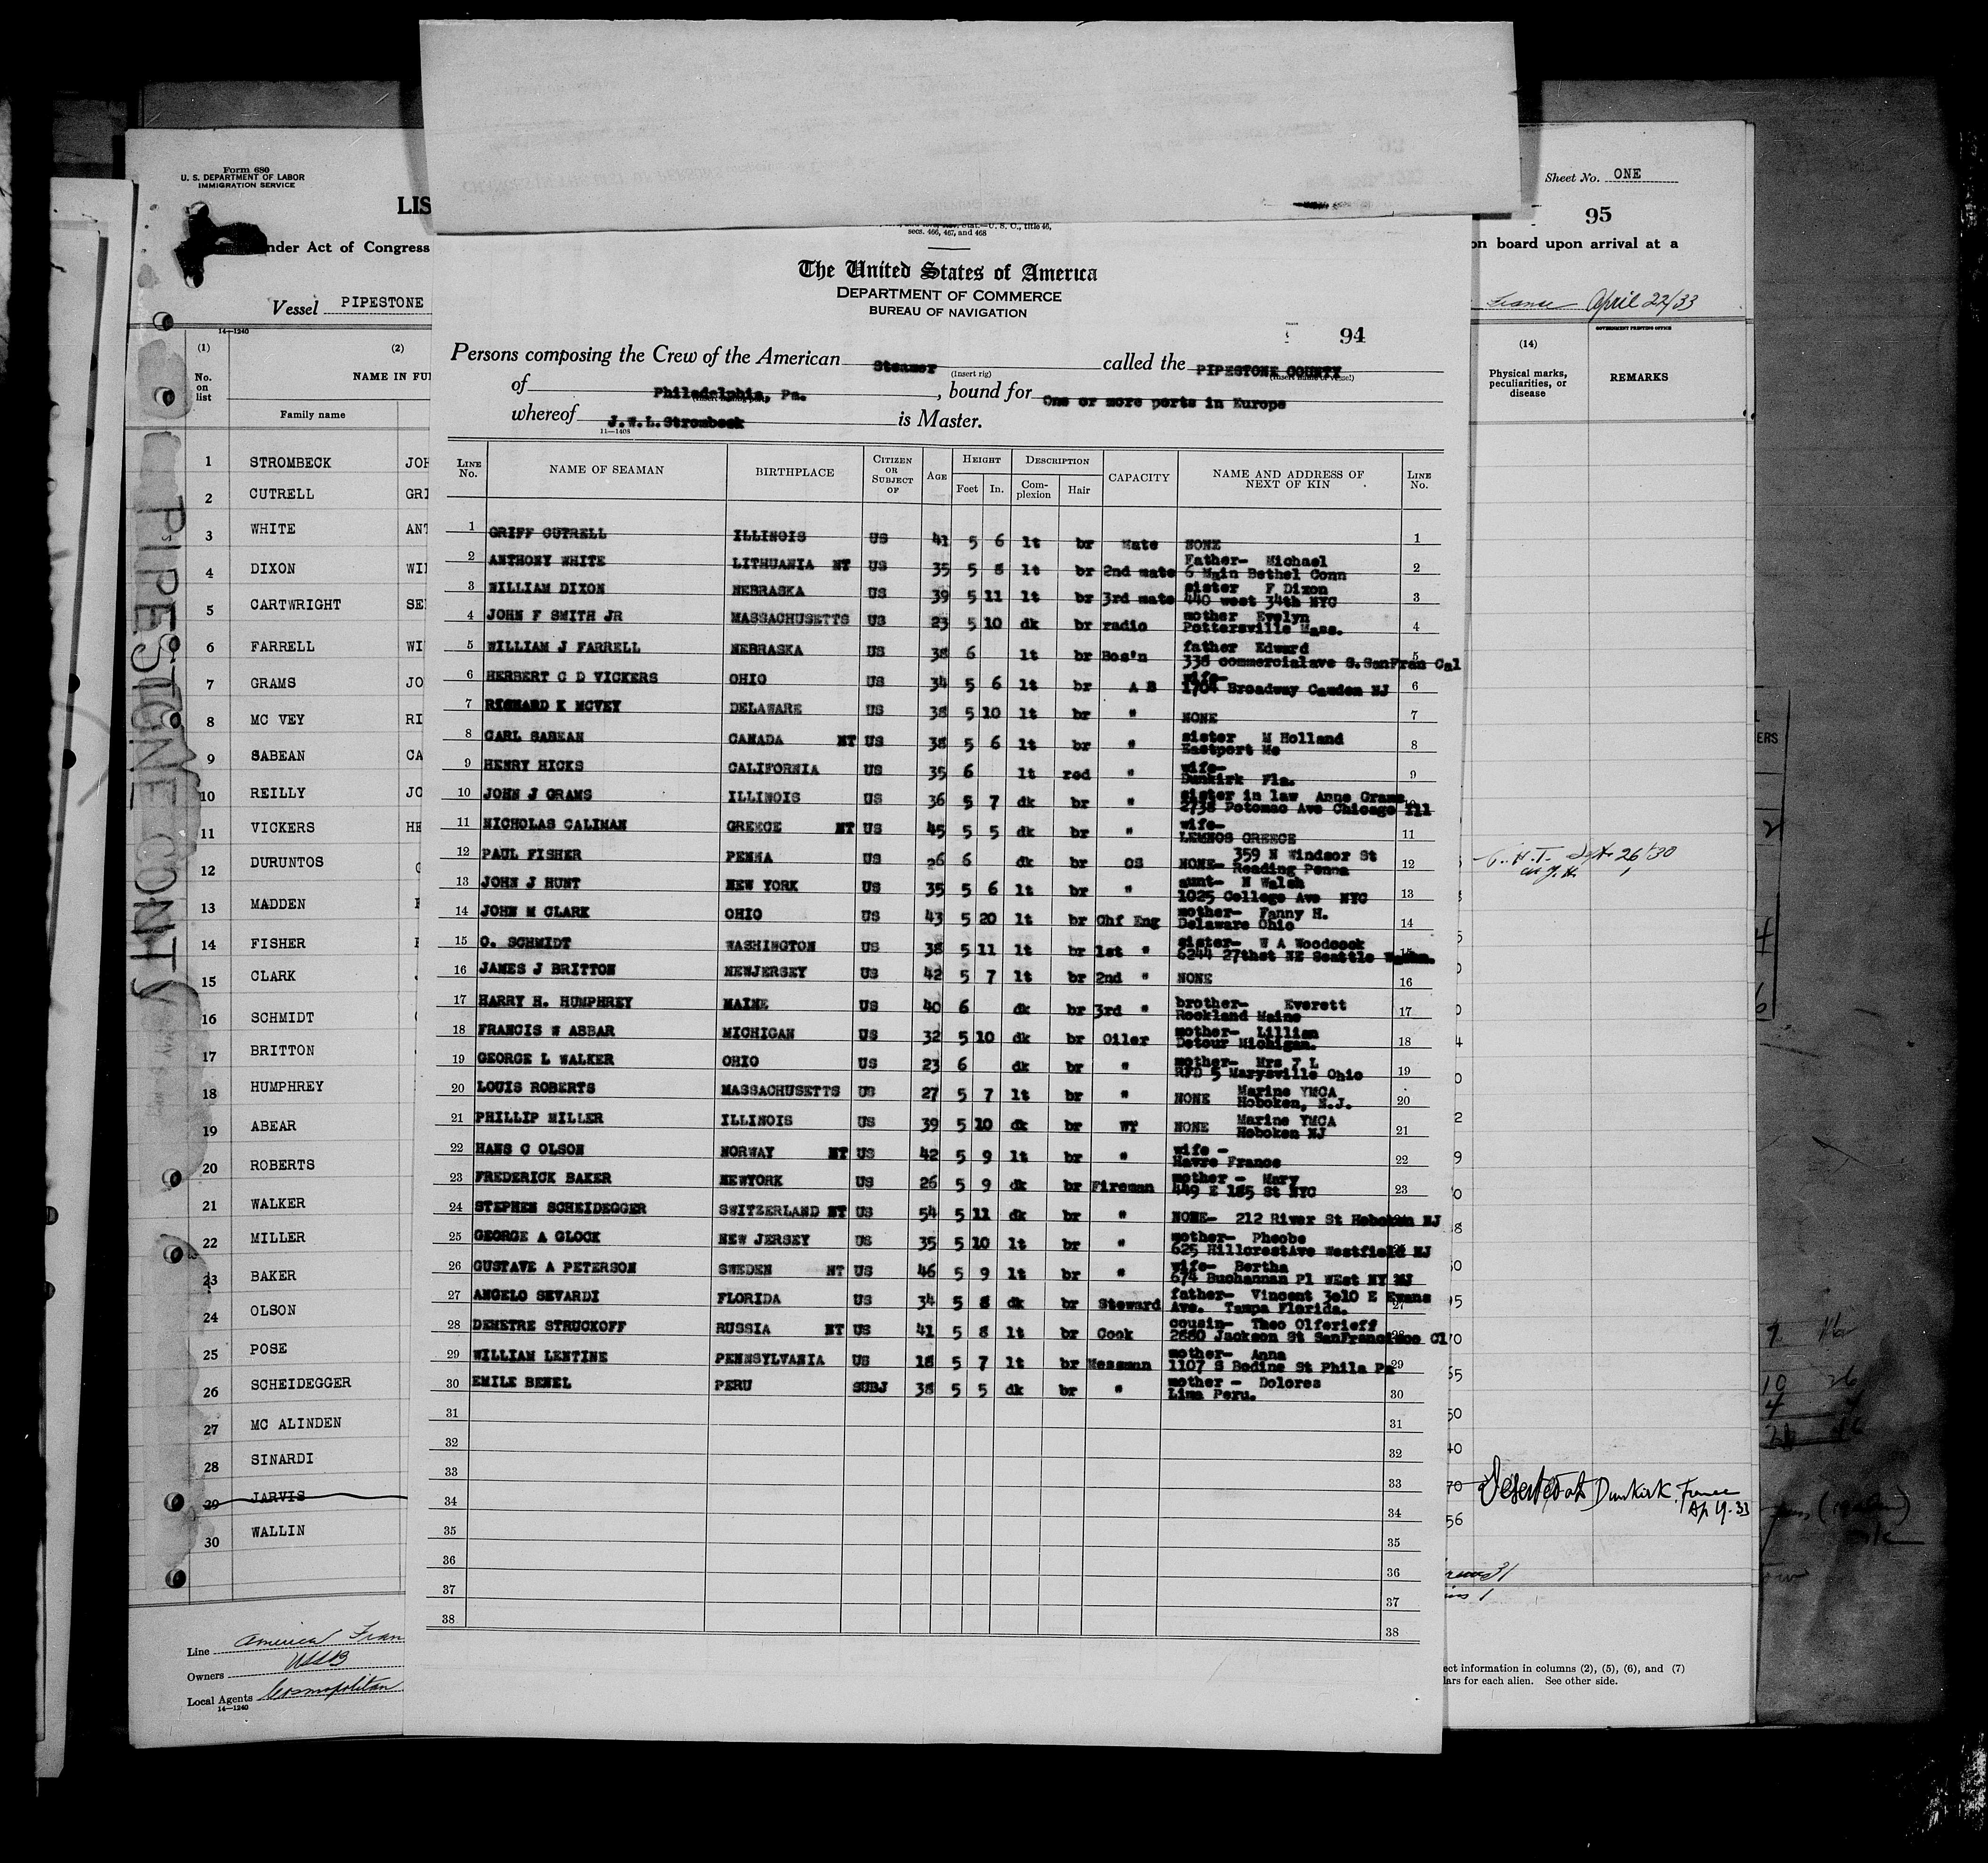 Form 680
U. S. DEPARTMENT OF LABOR
IMMIGRATION SERVICE
LIS
nder Act of Congress
Vessel PIPESTONE
14—1240
(1)
(2)
No. on list
NAME IN FUL
Family name
1 STROMBECK JOH
2 CUTRELL GRI
3 WHITE ANT
4 DIXON WIL
5 CARTWRIGHT SE
6 FARRELL WI
7 GRAMS JO
8 MC VEY RI
9 SABEAN CA
10 REILLY JO
11 VICKERS HE
12 DURUNTOS
13 MADDEN
14 FISHER
15 CLARK
16 SCHMIDT
17 BRITTON
18 HUMPHREY
19 ABEAR
20 ROBERTS
21 WALKER
22 MILLER
23 BAKER
24 OLSON
25 POSE
26 SCHEIDEGGER
27 MC ALINDEN
28 SINARDI
29 JARVIS
30 WALLIN
Line America Fran
Owners USSB
Local Agents Cosmopolitan
14—1240
PIPESTONE CONTY
Stat.—U. S. C., title 46,
secs. 466, 467, and 468
The United States of America
DEPARTMENT OF COMMERCE
BUREAU OF NAVIGATION
94
Persons composing the Crew of the American Steamer called the PIPESTONE COUNTY
(Insert rig)
of Philadelphia, Pa., bound for One or more ports in Europe
whereof J.W.L.Strombeck is Master.
11—1408
LINE No. NAME OF SEAMAN BIRTHPLACE CITIZEN OR SUBJECT OF AGE HEIGHT Feet In. DESCRIPTION Complexion Hair CAPACITY NAME AND ADDRESS OF NEXT OF KIN LINE No.
1 GRIFF CUTRELL ILLINOIS US 41 5 6 lt br Mate NONE 1
2 ANTHONY WHITE LITHUANIA NT US 35 5 8 lt br 2nd mate Father- Michael 6 Main Bethel Conn 2
3 WILLIAM DIXON NEBRASKA US 39 5 11 lt br 3rd mate sister F Dixon 440 west 34th NYC 3
4 JOHN F SMITH JR MASSACHUSETTS US 23 5 10 dk br radio mother Evelyn Pottersville Mass. 4
5 WILLIAM J FARRELL NEBRASKA US 38 6 lt br Bos'n father Edward 338 commercialave S.SanFran Cal 5
6 HERBERT C D VICKERS OHIO US 34 5 6 lt br A B wife- 1704 Broadway Camden NJ 6
7 RICHARD K MCVEY DELAWARE US 38 5 10 lt br " NONE 7
8 CARL SABEAN CANADA NT US 38 5 6 lt br " sister M Holland Eastport Me 8
9 HENRY HICKS CALIFORNIA US 35 6 lt red " wife- Dunkirk Fla. 9
10 JOHN J GRAMS ILLINOIS US 36 5 7 dk br " sister in law Anne Grams 2738 Potomac Ave Chicago Ill 10
11 NICHOLAS CALIMAN GREECE NT US 45 5 5 dk br " wife- LEMNOS GREECE 11
12 PAUL FISHER PENNA US 26 6 dk br OS NONE- 359 N Windsor St Reading Penna 12
13 JOHN J HUNT NEW YORK US 35 5 6 lt br " aunt- N Walsh 1025 College Ave NYC 13
14 JOHN M CLARK OHIO US 43 5 20 lt br Chf Eng mother- Fanny H. Delaware Ohio 14
15 O. SCHMIDT WASHINGTON US 38 5 11 lt br 1st " sister- W A Woodcock 6244 27thst NE Seattle Washn. 15
16 JAMES J BRITTON NEWJERSEY US 42 5 7 lt br 2nd " NONE 16
17 HARRY H. HUMPHREY MAINE US 40 6 dk br 3rd " brother- Everett Rockland Maine 17
18 FRANCIS W ABBAR MICHIGAN US 32 5 10 dk br Oiler mother- Lillian Detour Michigan. 18
19 GEORGE L WALKER OHIO US 23 6 dk br " mother- Mrs F L RFD 5 Marysville Ohio 19
20 LOUIS ROBERTS MASSACHUSETTS US 27 5 7 lt br " NONE Marine YMCA Hoboken, N.J. 20
21 PHILLIP MILLER ILLINOIS US 39 5 10 dk br WT NONE Marine YMCA Hoboken NJ 21
22 HANS C OLSON NORWAY NT US 42 5 9 lt br " wife - Havre France 22
23 FREDERICK BAKER NEWYORK US 26 5 9 dk br Fireman mother - Mary 449 E 185 St NYC 23
24 STEPHEN SCHEIDEGGER SWITZERLAND NT US 54 5 11 dk br " NONE- 212 River St Hoboken NJ
25 GEORGE A GLOCK NEW JERSEY US 35 5 10 lt br " mother- Pheobe 625 HillcrestAve Westfield NJ
26 GUSTAVE A PETERSON SWEDEN NT US 46 5 9 lt br " wife- Bertha 674 Buchannan Pl WEst NY NJ
27 ANGELO SEVARDI FLORIDA US 34 5 8 dk br Steward father- Vincent 3010 E Evans Ave. Tampa Florida. 27
28 DEMETRE STRUCKOFF RUSSIA NT US 41 5 8 lt br Cook cousin- Theo Olferieff 2880 Jackson St SanFrancisco Cl 28
29 WILLIAM LENTINE PENNSYLVANIA US 18 5 7 lt br Messman mother- Anna 1107 S Bodine St Phila Pa 29
30 EMILE BENEL PERU SUBJ 38 5 5 dk br " mother - Dolores Lima Peru. 30
31 31
32 32
33 33
34 34
35 35
36 36
37 37
38 38
Sheet No. ONE
95
on board upon arrival at a
France April 22/33
GOVERNMENT PRINTING OFFICE
(14)
Physical marks, peculiarities, or disease
REMARKS
Sept. 26/30
Deserted at Dunkirk, France
Ap 19-33
ect information in columns (2), (5), (6), and (7)
lars for each alien. See other side.
ERS